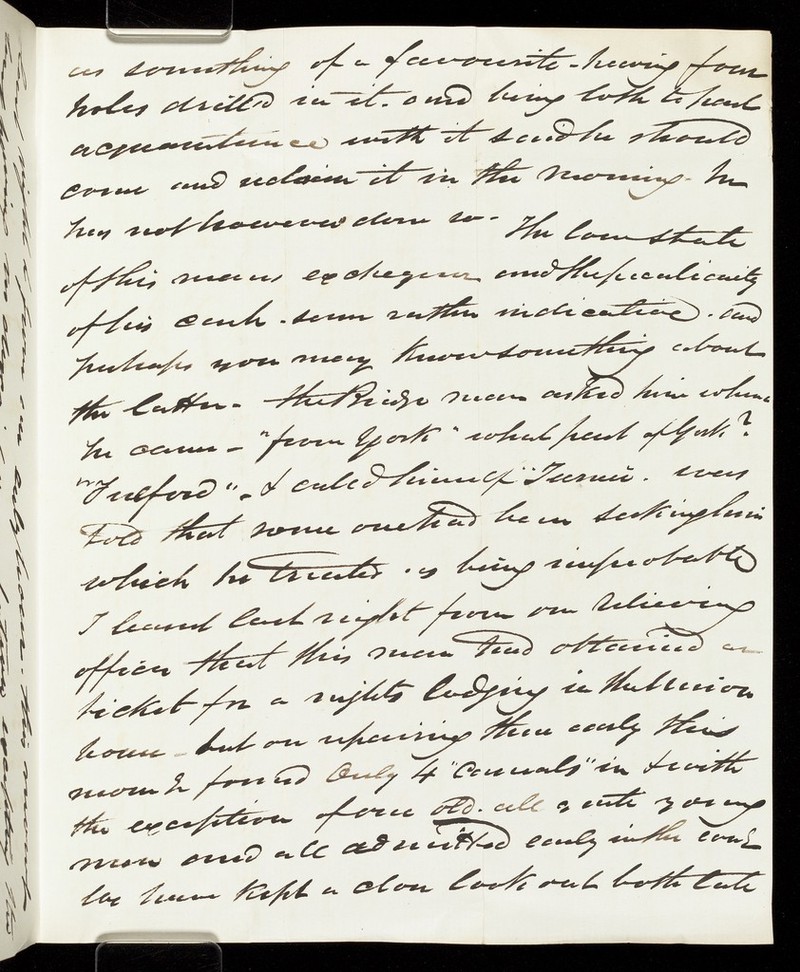 as something of a favourite - having four
holes drilled in it. and being loth to part
acquaintance with it said he should
come and reclaim it in the morning - he
has not however done so - The low state
of this mans exchequer and the peculiarity
of his cash - seem rather indicative. and
perhaps you may know something about
the latter - the Bridge man asked him whence
he came - "from York" what part of York?
"Fulford" - & called himself Turner. was
told that some one had been seeking him
which he treated as being improbable
I learnt last night from our relieving
officer that this man had obtained a
ticket for a nights lodging in the Union
house - but on repairing there early this
morn I found only 4 "casuals" in & with
the exception of one old. all quite young
men and all admitted early in the
We have kept a close look out both late